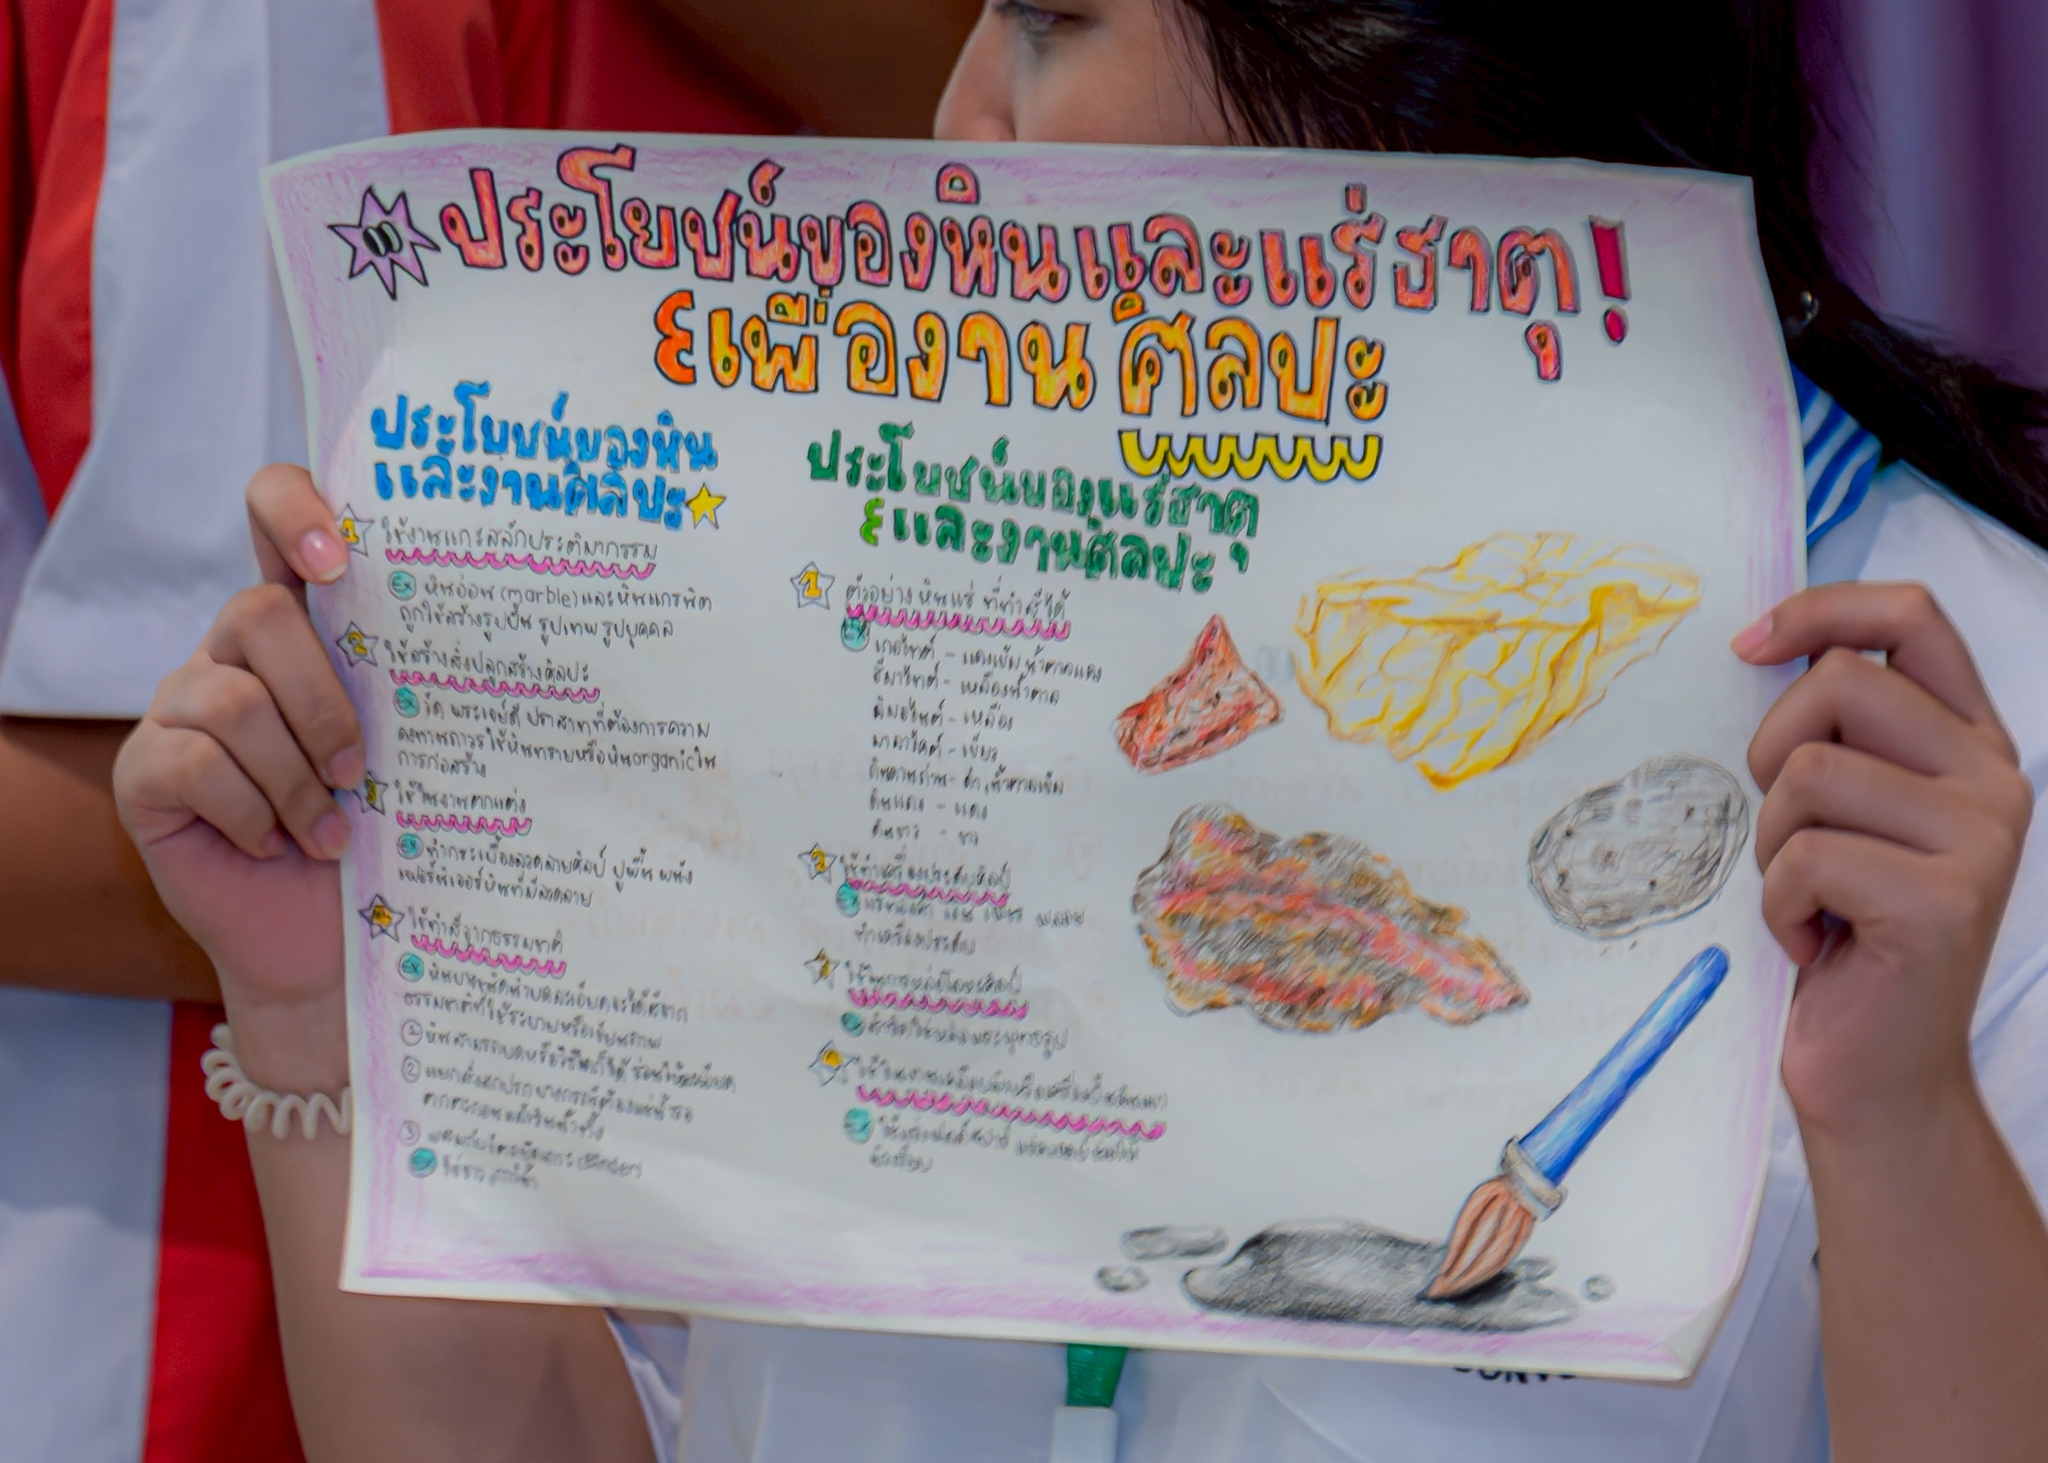 ประโยชน์ของหินและแร่ธาตุ!
เพื่องานศิลปะ
ประโยชน์ของหิน
และงานศิลปะ
1 ใช้งานแกะสลักประติมากรรม
Ex หินอ่อน (marble) และหินแกรนิต
ถูกใช้สร้างรูปปั้น รูปเทพ รูปบุคคล
2 ใช้สร้างสิ่งปลูกสร้างศิลปะ
Ex วัด พระเจดีย์ ปราสาท ที่ต้องการความ
คงทนถาวร ใช้หินทรายหรือหินorganicใน
การก่อสร้าง
3 ใช้ในงานตกแต่ง
Ex ทำกระเบื้องลวดลายศิลป์ ปูพื้น ผนัง
เฟอร์นิเจอร์หินที่มีลวดลาย
ใช้ทำสีจากธรรมชาติ
Ex หินบางชนิดนำบดละเอียดจะได้สีจาก
ธรรมชาติที่ใช้ระบายหรือเขียนภาพ
1 หินสามารถบดหรือ ร่อนให้ละเอียด
2
ตกตะกอนแล้วรินน้ำทิ้ง
3 (Binder)
Ex
ประโยชน์ของแร่ธาตุ
และงานศิลปะ
1 ตัวอย่าง หินแร่ ที่ทำสีได้
Ex เกอไทต์ - แดงเข้ม น้ำตาลแดง
ฮีมาไทต์ - เหลืองน้ำตาล
ลิมอไนต์ - เหลือง
มาลาไคต์ - เขียว
หินดานถ่าน - ดำ, น้ำตาลเข้ม
ดินแดง - แดง
ดินขาว - ขาว
2 ใช้ทำเครื่องประดับศิลป์
Ex
ทำเครื่องประดับ
3 ใช้ในการหล่อโลหะศิลป์
Ex พระพุทธรูป
Ex